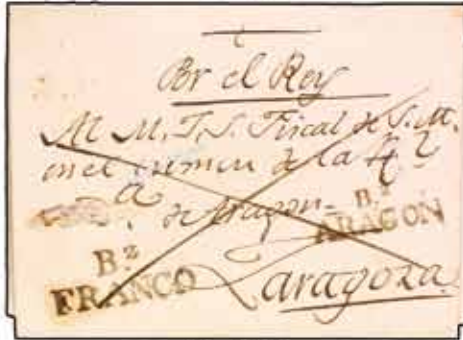 Por el Rey
Al M. I. S. Fiscal de S. M.
en el crimen de la
de Aragon
B.z
ARAGON
B.z
FRANCO
Zaragoza